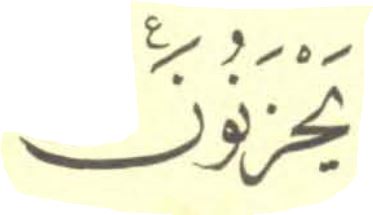 يَحْزَنُونَ ع